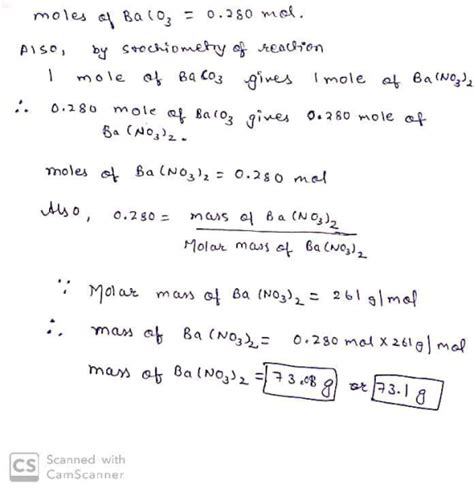 moles of BaCO3 = 0.280 mol.
Also, by stochiometry of reaction
1 mole of BaCO3 gives 1 mole of Ba(NO3)2
∴ 0.280 mole of BaCO3 gives 0.280 mole of
Ba(NO3)2.
moles of Ba(NO3)2 = 0.280 mol
Also, 0.280 = mass of Ba(NO3)2
Molar mass of Ba(NO3)2
∵ Molar mass of Ba(NO3)2 = 261 g/mol
∴ mass of Ba(NO3)2 = 0.280 mol × 261 g/mol
mass of Ba(NO3)2 = 73.08 g or 73.1 g
CS Scanned with
CamScanner